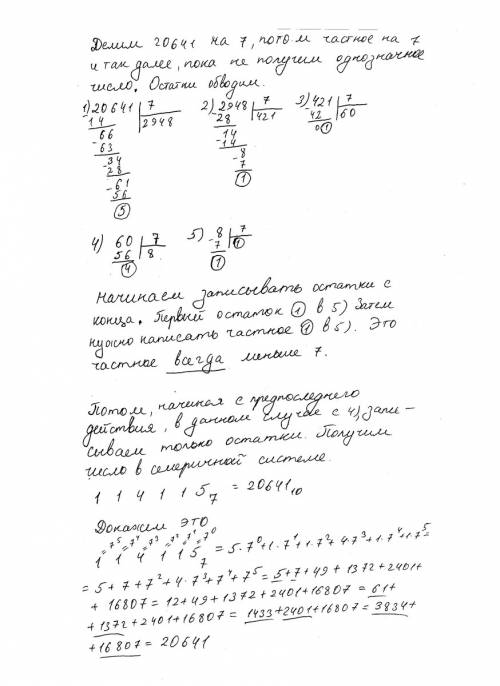 Делим 20641 на 7, потом частное на 7
и так далее, пока не получим однозначное
число. Остатки обводим.
1) 20641 | 7 2) 2948 | 7 3) 421 | 7
- 14 2948 - 28 421 42 60
66 14 01
- 63 - 14
- 34 - 8
28 7
- 61 1
56
5
4) 60 | 7 5) - 8 | 7
56 8 7 1
4 1
Начинаем записывать остатки с
конца. Первый остаток 1 в 5) Затем
нужно написать частное 1 в 5). Это
частное всегда меньше 7.
Потом, начиная с предпоследнего
действия, в данном случае с 4), запи-
сываем только остатки. Получим
число в семеричной системе.
1 1 4 1 1 5₇ = 20641₁₀
Докажем это
=7⁵ =7⁴ =7³ =7² =7¹ =7⁰
1 1 4 1 1 5₇ = 5·7⁰+1·7¹+1·7²+4·7³+1·7⁴+1·7⁵=
= 5+7+7²+4·7³+7⁴+7⁵ = 5+7+49+1372+2401+
+ 16807 = 12+49+1372+2401+16807 = 61+
+1372+2401+16807 = 1433+2401+16807 = 3834+
+16807 = 20641